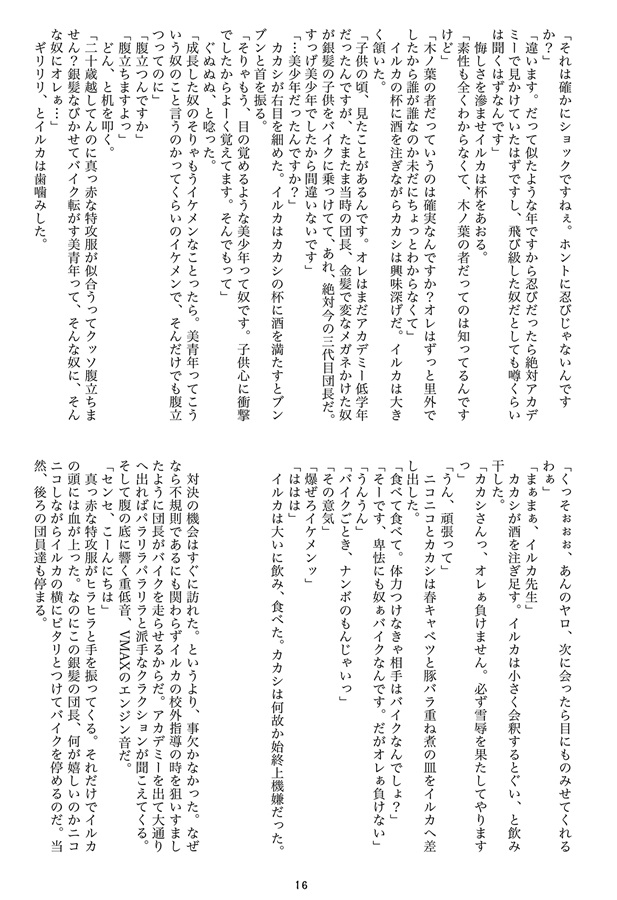 「それは確かにショックですねぇ。ホントに忍びじゃないんです
か？」
「違います。だって似たような年ですから忍びだったら絶対アカデ
ミーで見かけていたはずですし、飛び級した奴だとしても噂くらい
は聞くはずなんです」
悔しさを滲ませイルカは杯をあおる。
「素性も全くわからなくて、木ノ葉の者だってのは知ってるんです
けど」
「木ノ葉の者だっていうのは確実なんですか？オレはずっと里外で
したから誰が誰なのか未だにちょっとわからなくて」
イルカの杯に酒を注ぎながらカカシは興味深げだ。イルカは大き
く頷いた。
「子供の頃、見たことがあるんです。オレはまだアカデミー低学年
だったんですが、たまたま当時の団長、金髪で変なメガネかけた奴
が銀髪の子供をバイクに乗っけてて、あれ、絶対今の三代目団長だ。
すっげ美少年でしたから間違いないです」
「…美少年だったんですか？」
カカシが右目を細めた。イルカはカカシの杯に酒を満たすとブン
ブンと首を振る。
「そりゃもう、目の覚めるような美少年って奴です。子供心に衝撃
でしたからよーく覚えてます。そんでもって」
ぐぬぬぬ、と唸った。
「成長した奴のそりゃもうイケメンなことったら。美青年ってこう
いう奴のこと言うのかってくらいのイケメンで、そんだけでも腹立
つってのに」
「腹立つんですか」
「腹立ちますよっ」
どん、と机を叩く。
「二十歳越してんのに真っ赤な特攻服が似合うってクッソ腹立ちま
せん？銀髪なびかせてバイク転がす美青年って、そんな奴に、そん
な奴にオレぁ…」
ギリリリ、とイルカは歯噛みした。
「くっそぉぉぉ、あんのヤロ、次に会ったら目にものみせてくれる
わぁ」
「まぁまぁ、イルカ先生」
カカシが酒を注ぎ足す。イルカは小さく会釈するとぐい、と飲み
干した。
「カカシさんっ、オレぁ負けません。必ず雪辱を果たしてやります
っ」
「うん、頑張って」
ニコニコとカカシは春キャベツと豚バラ重ね煮の皿をイルカへ差
し出した。
「食べて食べて。体力つけなきゃ相手はバイクなんでしょ？」
「そーです、卑怯にも奴ぁバイクなんです。だがオレぁ負けない」
「うんうん」
「バイクごとき、ナンボのもんじゃいっ」
「その意気」
「爆ぜろイケメンッ」
「ははは」
イルカは大いに飲み、食べた。カカシは何故か始終上機嫌だった。
対決の機会はすぐに訪れた。というより、事欠かなかった。なぜ
なら不規則であるにも関わらずイルカの校外指導の時を狙いすまし
たように団長がバイクを走らせるからだ。アカデミーを出て大通り
へ出ればパラリラパラリラと派手なクラクションが聞こえてくる。
そして腹の底に響く重低音、VMAXのエンジン音だ。
「センセ、こーんにちは」
真っ赤な特攻服がヒラヒラと手を振ってくる。それだけでイルカ
の頭には血が上った。なのにこの銀髪の団長、何が嬉しいのかニコ
ニコしながらイルカの横にピタリとつけてバイクを停めるのだ。当
然、後ろの団員達も停まる。
16